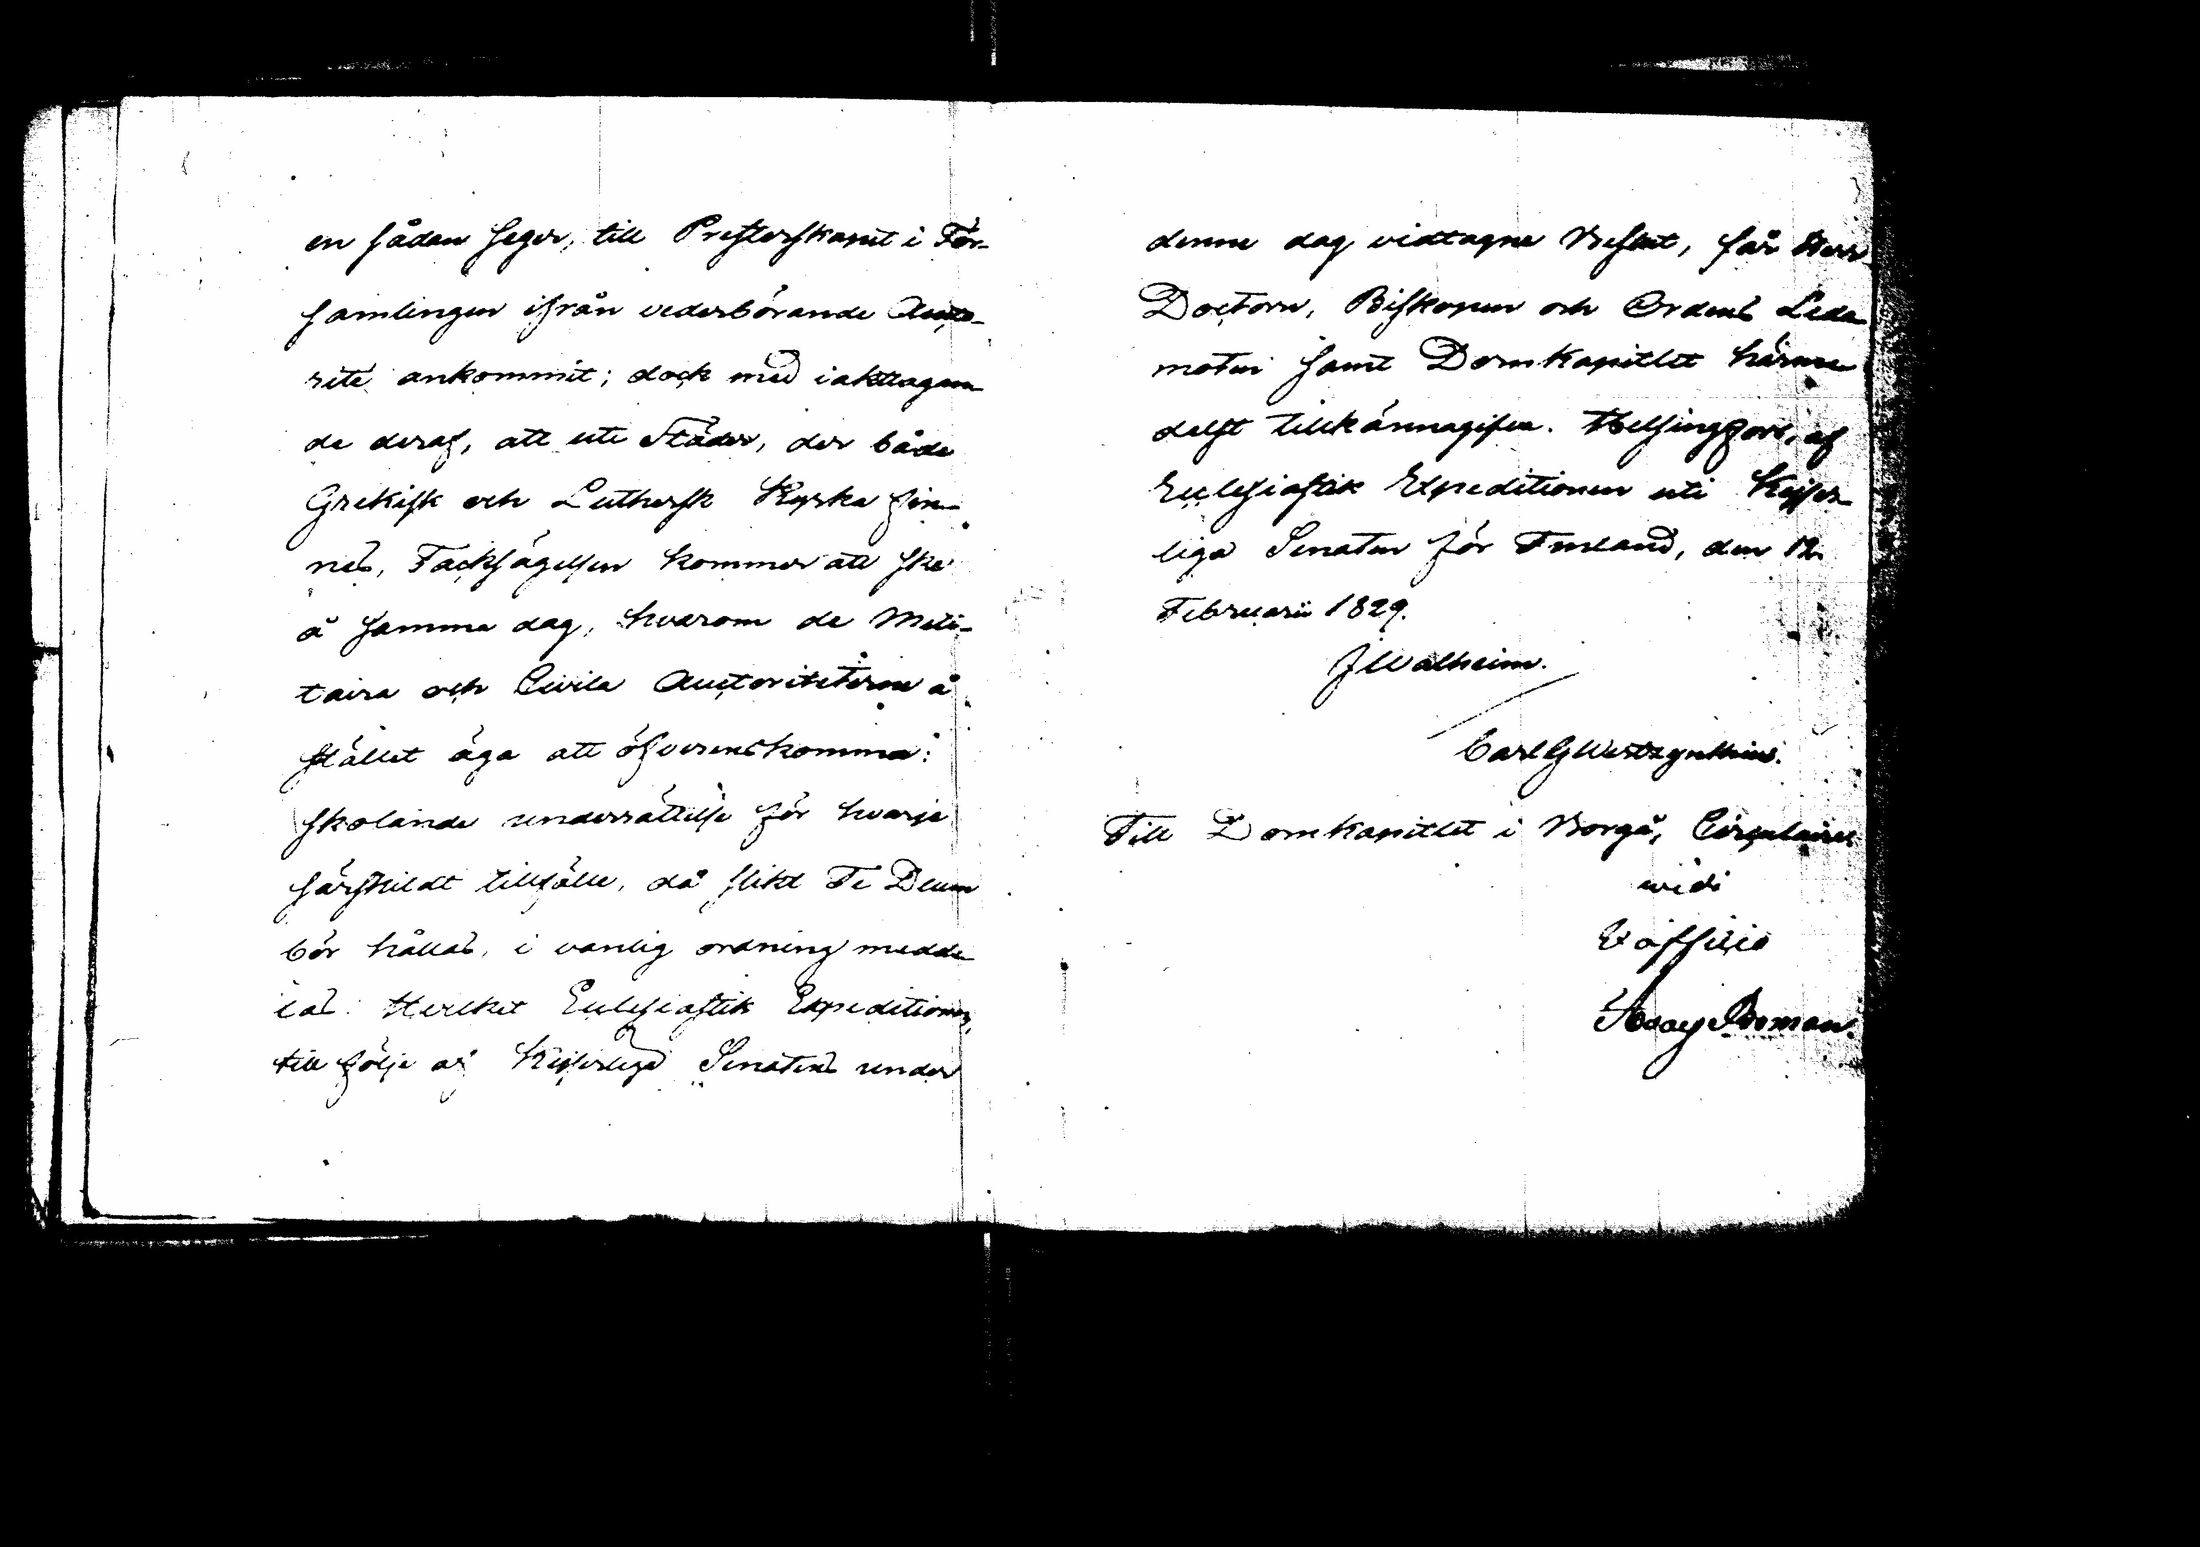 en sådan seger, till Presterskapet i För-
samlingen ifrån vederbörande Aucto-
rité ankommit; dock med iakttagan-
de deraf, att uti Städer, der både
Grekisk och Luthersk Kyrka fin-
nes, Tacksägelsen kommer att ske
å samma dag, hvarom de Mili-
taira och Civila Auctoriteterne å
stället äga att öfverenskomma:
skolande underrättelse för hvarje
särskildt tillfälle, då slikt Te Deum
bör hållas, i vanlig ordning medde-
las. Hvilket Ecclesiastik Expeditionen,
till följe af Kejserliga Senatens under
denne dag vidtagne Beslut, får Herr
Doctorn, Biskopen och Ordens Leda-
moten samt Domkapitlet härme-
delst tillkännagifva. Helsingfors, af
Ecclesiastik Expeditionen uti Kejser-
liga Senaten för Finland, den 12
Februarii 1829.
J Walheim.
Carl G Westzynthius.
Till Domkapitlet i Borgå, Circulaires
widi
Ex officio
Roman.